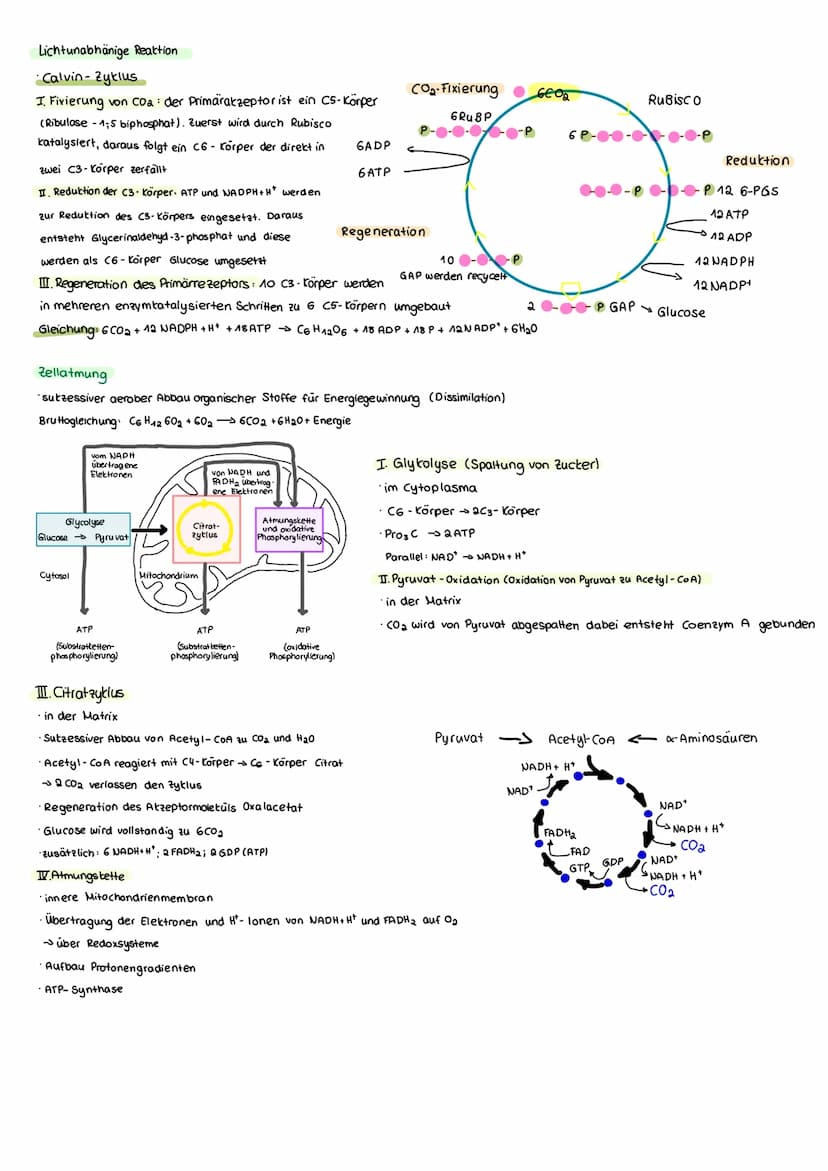 Lichtunabhänige Reaktion
· Calvin-Zyklus
I. Fivierung von CO₂: der Primärakzeptor ist ein C5-Körper
(Ribulose-1,5 biphosphat). Zuerst wird durch Rubisco
katalysiert, daraus folgt ein C6-Körper der direkt in
zwei C3-Körper zerfällt
II. Reduktion der C3-Körper. ATP und NADPH+H⁺ werden
zur Reduktion des C3-Körpers eingesetzt. Daraus
entsteht Glycerinaldehyd-3-phosphat und diese
werden als C6-Körper Glucose umgesetzt
III. Regeneration des Primärrezeptors: 10 C3-Körper werden
in mehreren enzymkatalysierten Schritten zu 6 C5-Körpern umgebaut
Gleichung: 6CO₂ + 12 NADPH+H⁺ + 18ATP → C₆H₁₂O₆ + 18 ADP + 18P + 12NADP⁺ + 6H₂O
CO₂-Fixierung
6CO₂
RuBisCO
6RuBP
P P
6 P P
6ADP
6ATP
Reduktion
P P 12 6-PGS
12 ATP
12 ADP
Regeneration
12 NADPH
10 P
GAP werden recycelt
12NADP⁺
2 P GAP → Glucose
Zellatmung
· sukzessiver aerober Abbau organischer Stoffe für Energiegewinnung (Dissimilation)
Bruttogleichung: C₆H₁₂6O₂ + 6O₂ → 6CO₂ + 6H₂O + Energie
vom NADH
übertragene
Elektronen
von NADH und
FADH₂ übertrag-
ene Elektronen
Glycolyse
Glucose → Pyruvat
Citrat-
zyklus
Atmungskette
und oxidative
Phosphorylierung
Cytosol
Mitochondrium
ATP
ATP
ATP
(Substratketten-
phosphorylierung)
(Substratketten-
phosphorylierung)
(oxidative
Phosphorylierung)
I. Glykolyse (Spaltung von Zucker)
· im Cytoplasma
· C6-Körper → 2C3-Körper
· Pro3C → 2ATP
Parallel: NAD⁺ → NADH+H⁺
II. Pyruvat-Oxidation (Oxidation von Pyruvat zu Acetyl-CoA)
· in der Matrix
· CO₂ wird von Pyruvat abgespalten dabei entsteht Coenzym A gebunden
III. Citratzyklus
· in der Matrix
· Sukzessiver Abbau von Acetyl-CoA zu CO₂ und H₂O
· Acetyl-CoA reagiert mit C4-Körper → C6-Körper Citrat
→ 2 CO₂ verlassen den Zyklus
· Regeneration des Akzeptormoleküls Oxalacetat
· Glucose wird vollständig zu 6CO₂
· zusätzlich: 6 NADH+H⁺; 2 FADH₂; 2 GDP (ATP)
IV. Atmungskette
· innere Mitochondrienmembran
· Übertragung der Elektronen und H⁺-Ionen von NADH+H⁺ und FADH₂ auf O₂
→ über Redoxsysteme
· Aufbau Protonengradienten
· ATP-Synthase
Pyruvat → Acetyl-CoA ← α-Aminosäuren
NADH + H⁺
NAD⁺
NAD⁺
NADH + H⁺
CO₂
FADH₂
FAD
GTP GDP
NAD⁺
NADH + H⁺
CO₂